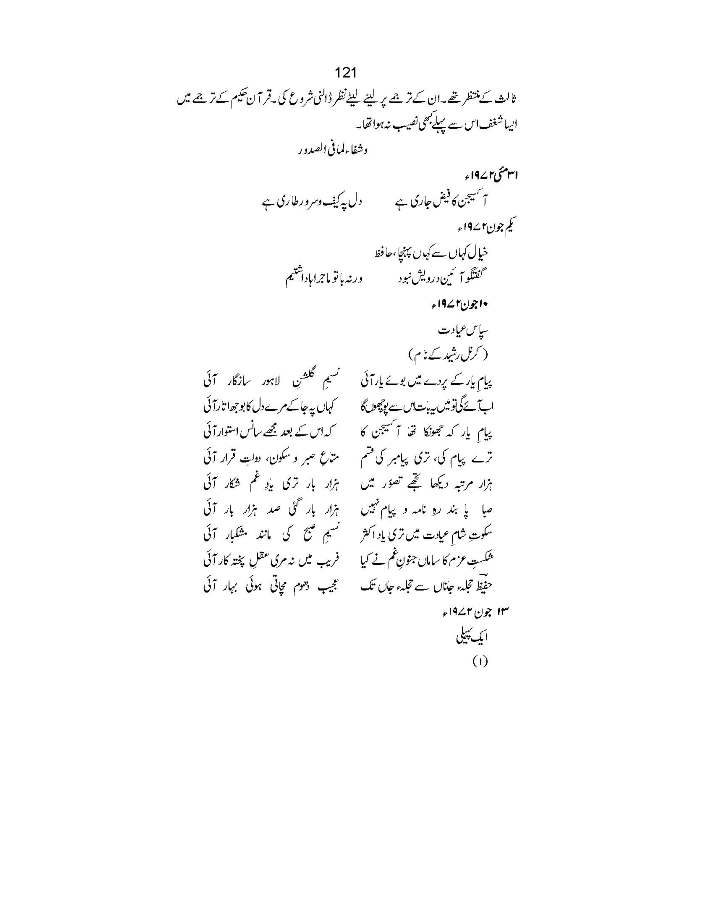 121
ثالث کے منتظر تھے۔ان کے ترجمے پر لیٹے لیٹے نظر ڈالنی شروع کی۔قرآن حکیم کے ترجمے میں
ایسا شغف اس سے پہلے کبھی نصیب نہ ہوا تھا۔
وشفاء لمافی الصدور
۳۱ مئی ۱۹۷۲ء
آکسیجن کا فیض جاری ہے دل پہ کیف و سرور طاری ہے
یکم جون ۱۹۷۲ء
خیال کہاں سے کہاں پہنچا، حافظ
گفتگو آئین درویش نبود ورنہ با تو ماجراہا داشتیم
۱۰ جون ۱۹۷۲ء
سپاس عیادت
(کرنل رشید کے نام)
پیام یار کے پردے میں بوئے یار آئی نسیم گلشن لاہور سازگار آئی
اب آئے گی تو میں یہ بات اس سے پوچھوں گا کہاں پہ جا کے مرے دل کا بوجھ اتار آئی
پیام یار کہ جھونکا تھا آکسیجن کا کہ اس کے بعد مجھے سانس استوار آئی
ترے پیام کی، تری پیامبر کی قسم متاعِ صبر و سکون، دولتِ قرار آئی
ہزار مرتبہ دیکھا تجھے تصوّر میں ہزار بار تری یادِ غم شکار آئی
صبا پا بند رہِ نامہ و پیام نہیں ہزار بار گئی صد ہزار بار آئی
سکوتِ شام عیادت میں تری یاد اکثر نسیمِ صبح کی مانند مشکبار آئی
شکستِ عزم کا ساماں جنونِ غم نے کیا فریب میں نہ مری عقلِ پختہ کار آئی
حفیظؔ حجلہء جاناں سے حجلہء جاں تک عجیب دھوم مچاتی ہوئی بہار آئی
۱۳ جون ۱۹۷۲ء
ایک پہیلی
(۱)